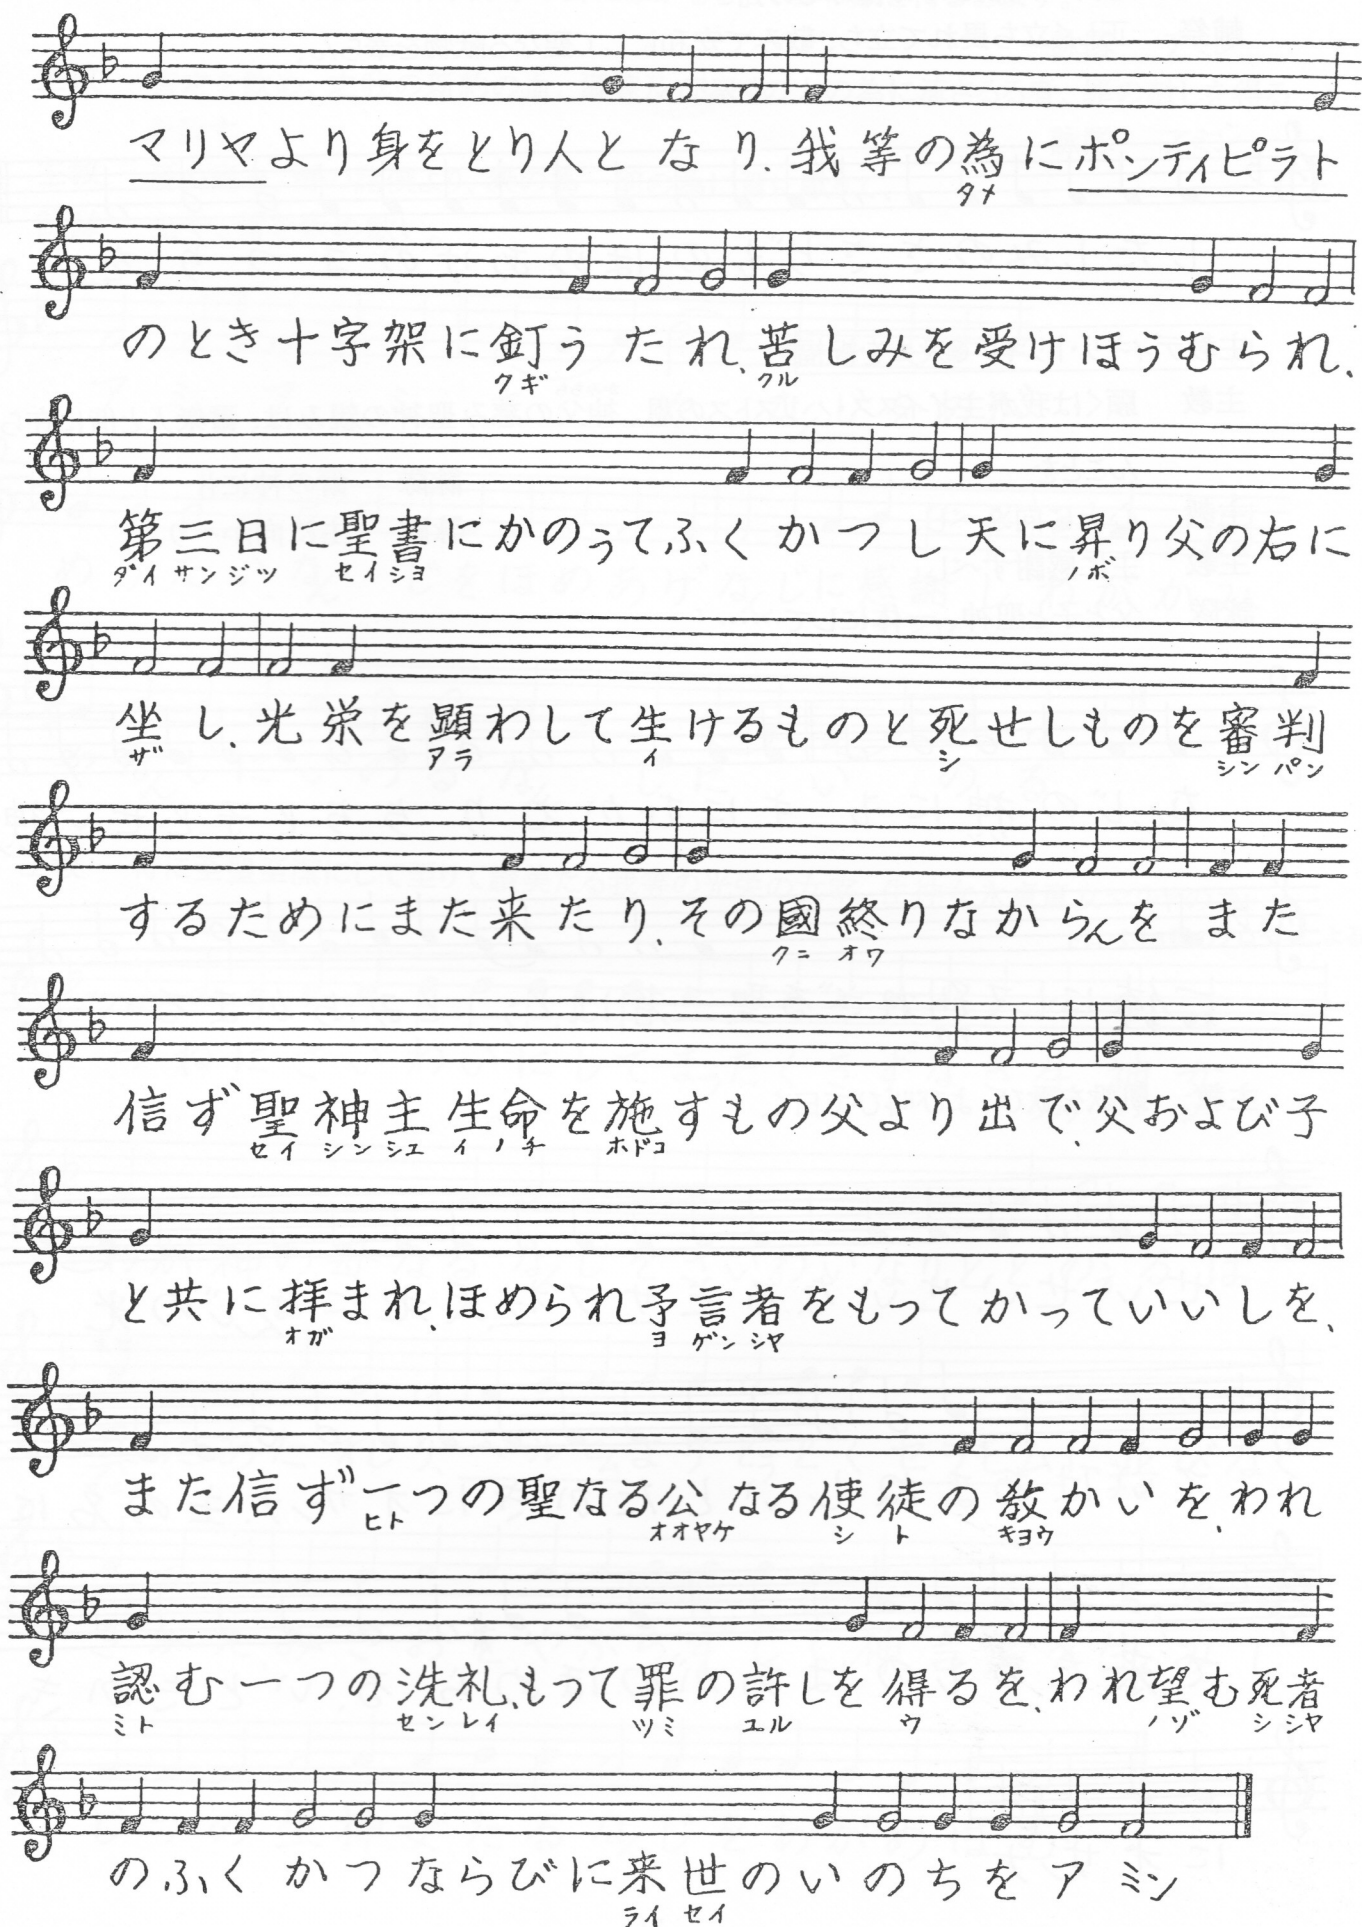 マリヤより身をとり人となり、我等の為にポンティピラト
タメ
のとき十字架に釘うたれ、苦しみを受けほうむられ、
クギ クル
第三日に聖書にかのうてふくかつし天に昇り父の右に
ダイ サンジツ セイショ ノボ
坐し、光栄を顕わして生けるものと死せしものを審判
ザ アラ イ シ シン パン
するためにまた来たり、その國終りなからんを また
クニ オワ
信ず聖神主生命を施すもの父より出で、父および子
セイ シン シュ イノチ ホドコ
と共に拝まれ、ほめられ予言者をもってかっていいしを、
オガ ヨ ゲン シヤ
また信ず一つの聖なる公なる使徒の教かいを、われ
ヒト オオヤケ シ ト キヨウ
認む一つの洗礼、もって罪の許しを得るを、われ望む死者
ミト セン レイ ツミ ユル ウ ノゾ シ シヤ
のふくかつならびに来世のいのちをアミン
ライ セイ